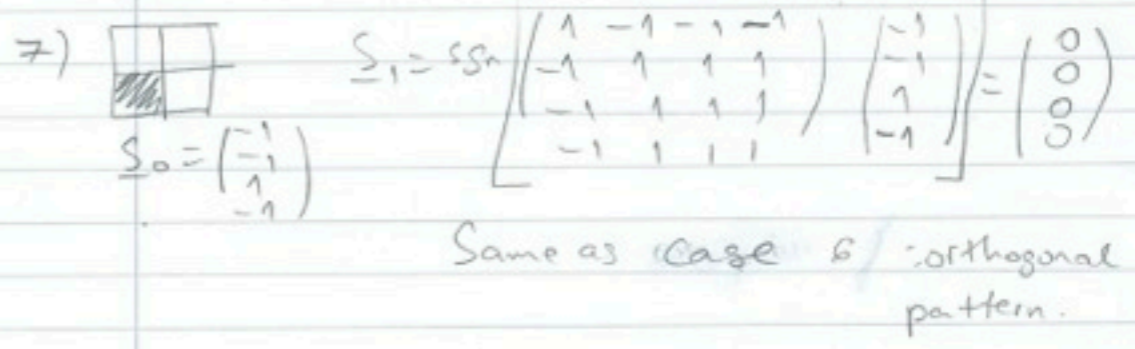 7) S₁ = sgn [ ( 1 -1 -1 -1 ; -1 1 1 1 ; -1 1 1 1 ; -1 1 1 1 ) ( -1 ; -1 ; 1 ; -1 ) ] = ( 0 ; 0 ; 0 ; 0 )
S₀ = ( -1 ; -1 ; 1 ; -1 )
Same as case 6 : orthogonal
pattern.